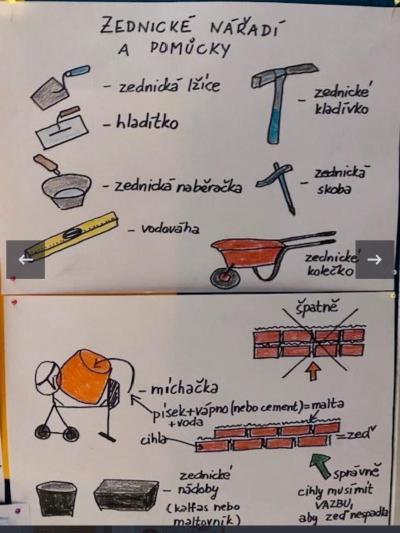 ZEDNICKÉ NÁŘADÍ
A POMŮCKY
- zednická lžíce
- zednické
kladívko
- hladítko
- zednická naběračka
- zednická
skoba
- vodováha
zednické
kolečko
špatně
- míchačka
písek + vápno (nebo cement) = malta
+ voda
cihla
= zeď
zednické
nádoby
(kalfas nebo
maltovník)
správně
cihly musí mít
VAZBU,
aby zeď nespadla